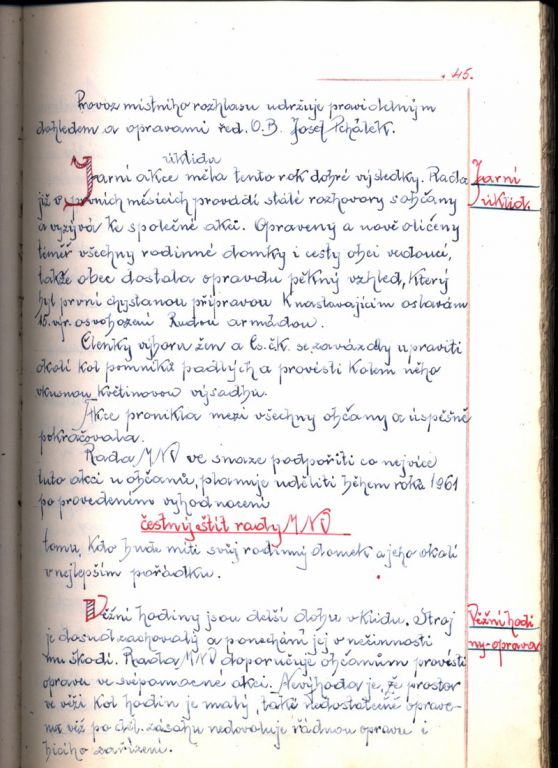 45.
Provoz místního rozhlasu udržuje pravidelným
dohledem a opravami řed. O.B. Josef Pchálek.
úklidu
Jarní akce měla tento rok dobré výsledky. Rada
již v prvních měsících provádí stálé rozhovory s občany
a vyzývá ke společné akci. Opraveny a nově olíčeny
téměř všechny rodinné domky i cesty obcí vedoucí,
takže obec dostala opravdu pěkný vzhled, který
byl první chystanou přípravou k nastávajícím oslavám
15. výr. osvobození Rudou armádou.
Jarní
úklid.
Členky výboru žen a Čs. čk. se zavázaly upraviti
okolí kol pomníků padlých a provésti kolem něho
vkusnou květinovou výsadbu.
Akce pronikla mezi všechny občany a úspěšně
pokračovala.
Rada MNV ve snaze podpořiti co nejvíce
tuto akci u občanů, plánuje uděliti během roku 1961
po provedeném vyhodnocení
čestný štít rady MNV
tomu, kdo bude míti svůj rodinný domek a jeho okolí
v nejlepším pořádku.
Věžní hodiny jsou delší dobu v klidu. Stroj
je dosud zachovalý a ponechání jej v nečinnosti
mu škodí. Rada MNV doporučuje občanům provésti
opravu ve svépomocné akci. Nevýhoda je, že prostor
ve věži kol hodin je malý, také nedostatečně oprave-
ná věž po děl. zásahu nedovoluje řádnou opravu i
bicího zařízení.
Věžní hodi
ny-oprava